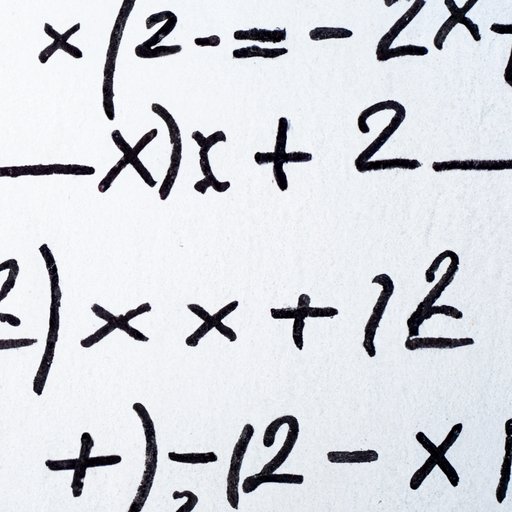 x(2-=-2x
x)x+2
2)xx+12
+)-(2-x